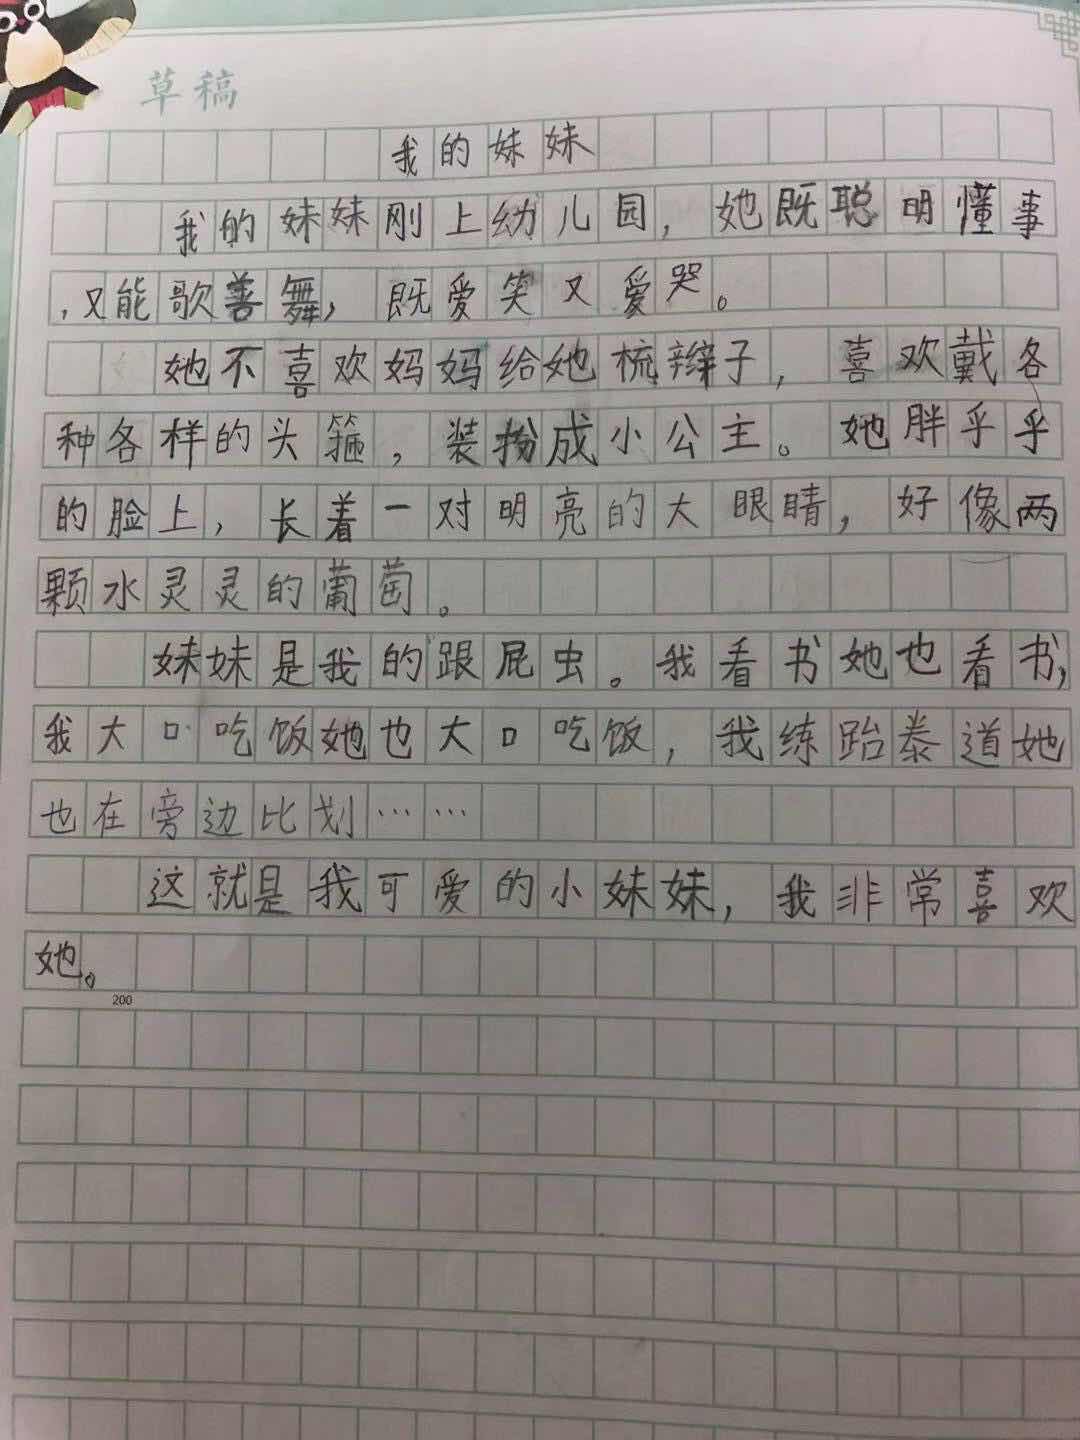 草稿
我的妹妹
我的妹妹刚上幼儿园，她既聪明懂事
，又能歌善舞，既爱笑又爱哭。
她不喜欢妈妈给她梳辫子，喜欢戴各
种各样的头箍，装扮成小公主。她胖乎乎
的脸上，长着一对明亮的大眼睛，好像两
颗水灵灵的葡萄。
妹妹是我的跟屁虫。我看书她也看书，
我大口吃饭她也大口吃饭，我练跆泰道她
也在旁边比划……
这就是我可爱的小妹妹，我非常喜欢
她。
200